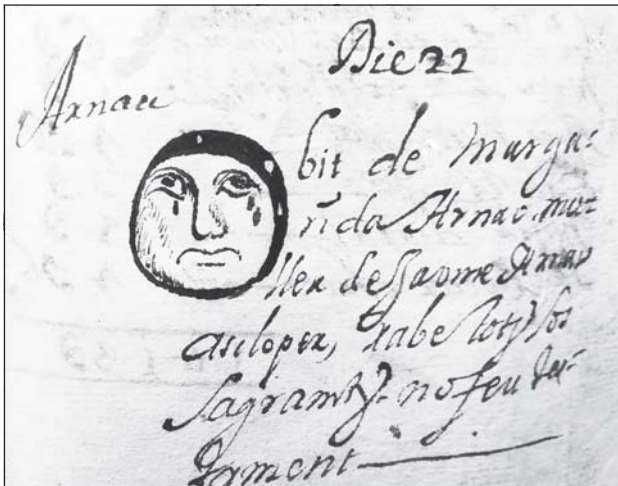 Die 22
Arnau
Obit de Marga:
rida Arnao, mu:
ller de Jaume Arnau
ascloper, rabe tots los
sagramts. no feu tes:
tament